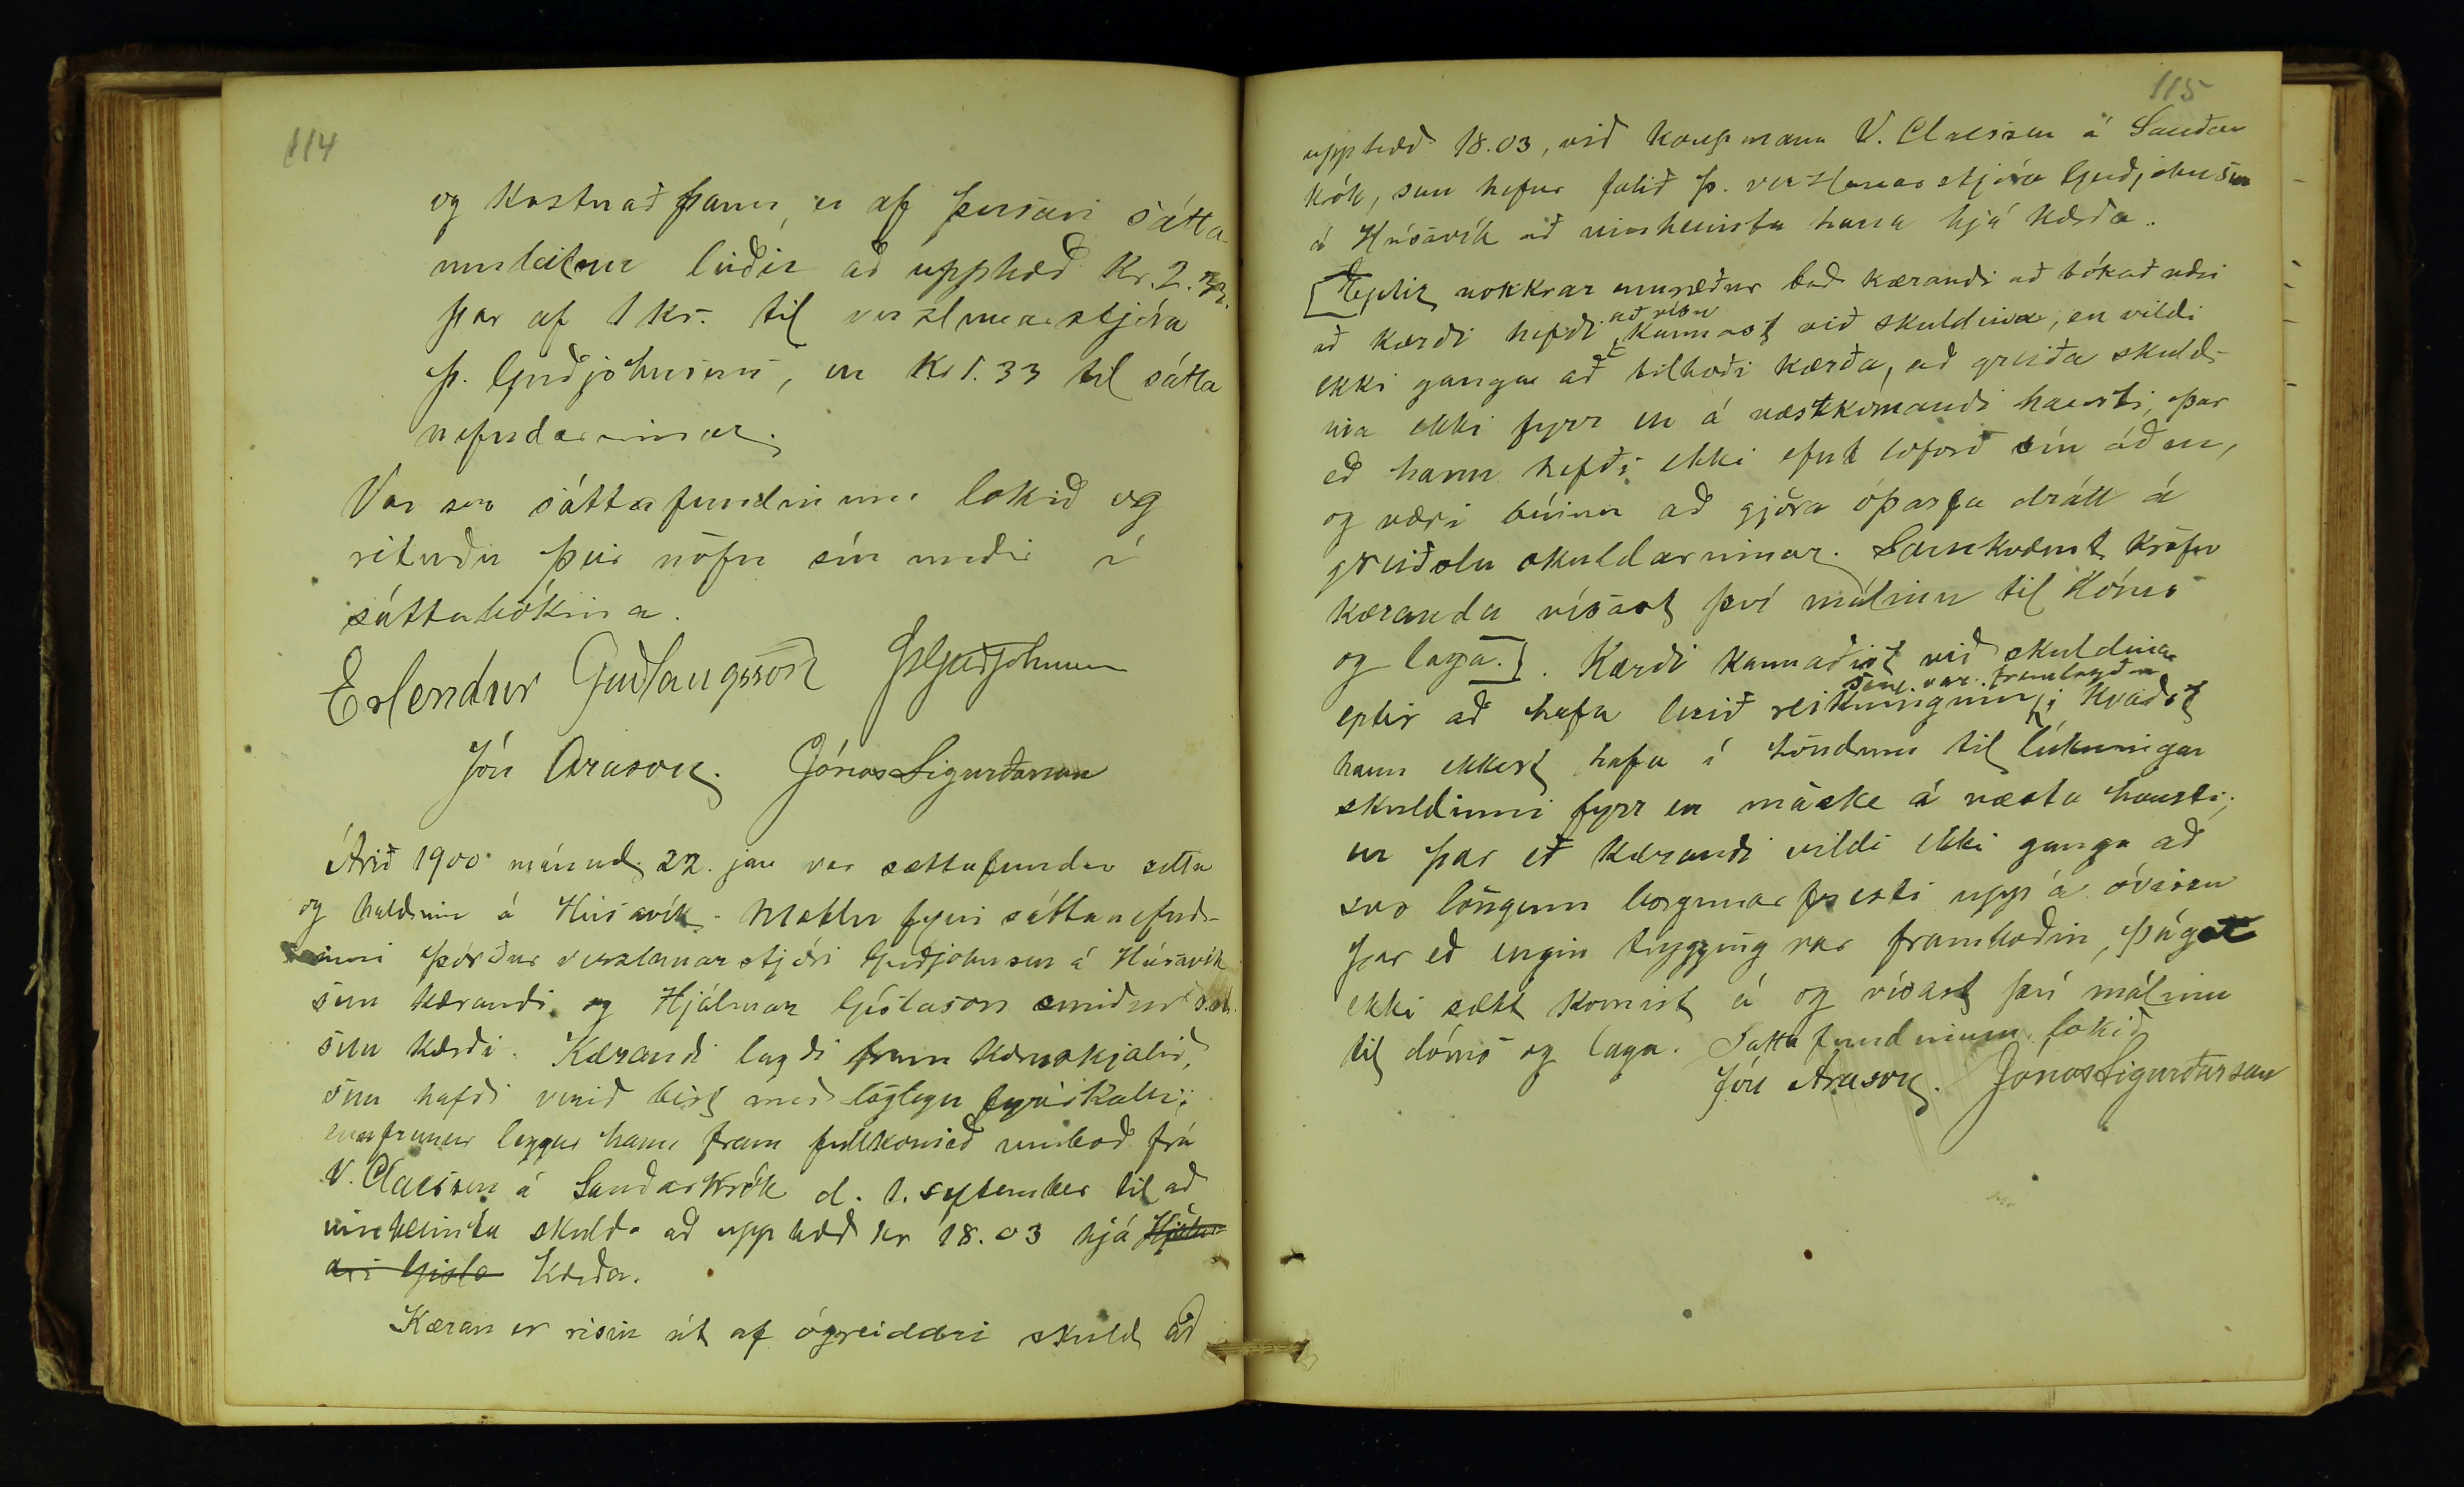 114
og kostnað þann, er af þessari sátta-
umleitun leiðir að upphæð Kr. 2.33.
þar af 1 kr. til verzlunarstjóra
Þ. Guðjohnsens, en Kr 1.33 til sátta
nefndarinnar.
Var svo sáttafundinum lokið og
rituðu þeir nöfn sín undir í
sáttabókina.
Erlendur Guðlaugsson ÞGuðjohnsen
Jón Arason. Jónas Sigurðsson
Árið 1900 mánud. 22. jan var sáttafundur settur
og haldinn á Húsavík. Mættu fyrir sáttanefnd-
inni Þórður verzlunarstjóri Guðjohnsen á Húsavík
sem kærandi og Hjálmar Gíslason smiður s.st.
sem kærði. Kærandi lagði fram kæruskjalið,
sem hafði verið birt með löglegu fyrirkalli;
ennfremur leggur hann fram fullkomið umboð frá
V. Claessen á Sauðarkrók d. 1. september til að
innheimta skuld að upphæð kr 18.03 hjá Hjálm-
ari Gísla kærða.
Kæran er risin út af ógreiddri skuld að
115
upphæð 18.03, við kaupmann V. Claessen á Sauðar
krók, sem hefur falið Þ. verzlunarstjóra Guðjohnsen
á Húsavík að innheimta hana hjá kærða.
[Eptir nokkrar umræður bað kærandi að bókað væri
að kærði hefði að vísu kannast við skuldina, en vildi
ekki ganga að tilboði kærða, að greiða skuld-
ina ekki fyrr en á næstkomandi hausti, þar
eð hann hefði ekki efnt loforð sín áður,
og væri búinn að gjöra óþarfa drátt á
greiðslu skuldarinnar. Samkvæmt kröfu
kæranda vísast því málinu til dóms
og laga.]. Kærði kannaðist við skuldina
eptir að hafa lesið reikninginn, sem var framlagður; kvaðst
hann ekkert hafa í höndum til lúkningar
skuldinni fyrr en máske á næsta hausti;
en þar eð kærandi vildi ekki ganga að
svo löngum borgunarfresti upp á óvissu
þar eð engin trygging var framboðin, þá gat
ekki sætt komist á og vísast því málinu
til dóms og laga. Sáttafundinum lokið
Jón Arason. Jónas Sigurðarson